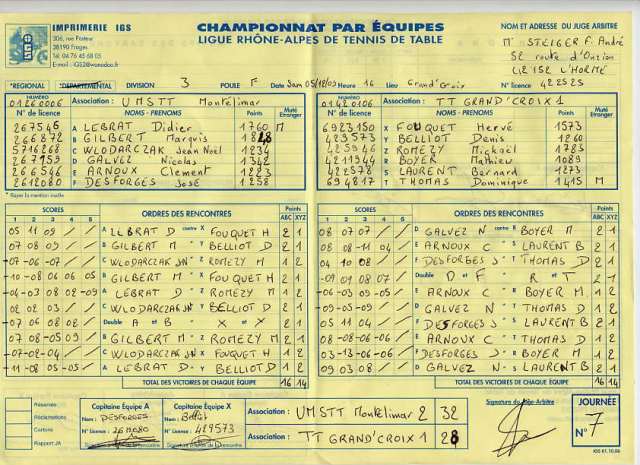 IMPRIMERIE IGS
306, rue Pasteur
38190 Froges
Tél. 04 76 45 68 05
E-mail : IGS2@wanadoo.fr
CHAMPIONNAT PAR ÉQUIPES
LIGUE RHÔNE-ALPES DE TENNIS DE TABLE
NOM ET ADRESSE DU JUGE ARBITRE
Mr STEIGER F. André
52 route d'Onzion
42152 L'HORME
*RÉGIONAL *DÉPARTEMENTAL DIVISION 3 POULE F Date Sam 05/12/09 Heure 16 Lieu Grand'Croix N° licence 422525
NUMÉRO 01260006 Association : UMSTT Montélimar
N° de licence NOMS - PRÉNOMS Points Muté Etranger
267545 A LEBRAT Didier 1760 M
266872 B GILBERT Marquis 1828
5716268 C WLODARCZAK Jean Noël 1234
267159 D GALVEZ Nicolas 1342
266546 E ARNOUX Clement 1223
2612080 F DESFORGES José 1258
* Rayer la mention inutile
NUMÉRO 01420106 Association : TT GRAND'CROIX 1
N° de licence NOMS - PRÉNOMS Points Muté Etranger
6923150 X FOUQUET Hervé 1573
429573 Y BELLIOT Denis 1260
425946 Z ROMEZY Mickaël 1783
4211944 R BOYER Mathieu 1089
422578 S LAURENT Bernard 1273
694817 T THOMAS Dominique 1415 M
SCORES ORDRES DES RENCONTRES Points
1 2 3 4 5 ABC XYZ
05 11 09 A LEBRAT D contre X FOUQUET H 2 1
07 08 09 B GILBERT M Y BELLIOT D 2 1
-07 -06 -07 C WLODARCZAK JN Z ROMEZY M 1 2
-10 -08 06 06 05 B GILBERT M X FOUQUET H 2 1
-04 -03 08 02 -09 A LEBRAT D Z ROMEZY M 1 2
02 02 03 C WLODARCZAK JN Y BELLIOT D 2 1
07 06 08 02 Double A et B X et X 2 1
07 08 -05 09 B GILBERT M Z ROMEZY M 2 1
-07 -02 -04 C WLODARCZAK JN X FOUQUET H 1 2
-11 -08 05 -05 A LEBRAT D Y BELLIOT D 1 2
TOTAL DES VICTOIRES DE CHAQUE ÉQUIPE 16 14
SCORES ORDRES DES RENCONTRES Points
1 2 3 4 5 ABC XYZ
08 07 07 D GALVEZ N contre R BOYER M 2 1
08 08 -11 04 E ARNOUX C S LAURENT B 2 1
04 10 08 F DESFORGES J T THOMAS D 2 1
-09 09 08 07 Double D et F R et T 2 1
-06 -03 09 -05 E ARNOUX C R BOYER M 1 2
-06 -09 05 -05 D GALVEZ N T THOMAS D 1 2
05 11 04 F DESFORGES J S LAURENT B 2 1
-08 -08 -06 E ARNOUX C T THOMAS D 1 2
03 -13 -06 -06 F DESFORGES J R BOYER M 1 2
09 -04 09 09 D GALVEZ N S LAURENT B 2 1
TOTAL DES VICTOIRES DE CHAQUE ÉQUIPE 16 14
Réserves
Réclamations
Cartons
Rapport JA
Capitaine Équipe A
Nom : DESFORGES
N° licence : 2612080
Capitaine Équipe X
Nom : Belliot
N° licence : 429573
Association : UMSTT Montélimar 2 32
Association : TT GRAND'CROIX 1 28
Signature du Juge-Arbitre
JOURNÉE
N° 7